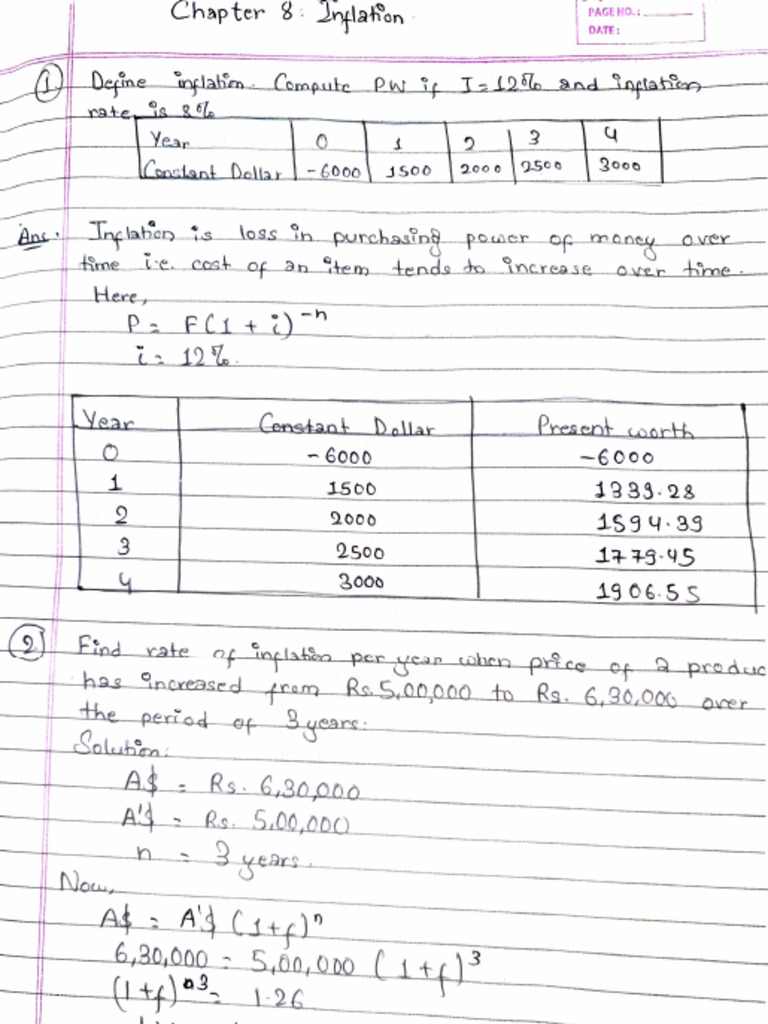 Chapter 8: Inflation
PAGE NO.:
DATE:
① Define inflation. Compute PW if I = 12% and inflation
rate is 8%
Year 0 1 2 3 4
Constant Dollar -6000 1500 2000 2500 3000
Ans. Inflation is loss in purchasing power of money over
time i.e. cost of an item tends to increase over time.
Here,
P = F(1 + i)^-n
i = 12%.
Year Constant Dollar Present worth
0 -6000 -6000
1 1500 1339.28
2 2000 1594.39
3 2500 1779.45
4 3000 1906.55
② Find rate of inflation per year when price of a produc
has increased from Rs. 5,00,000 to Rs. 6,30,000 over
the period of 3 years.
Solution:
A$ = Rs. 6,30,000
A'$ = Rs. 5,00,000
n = 3 years.
Now,
A$ = A'$ (1+f)^n
6,30,000 = 5,00,000 (1+f)^3
(1+f)^3 = 1.26